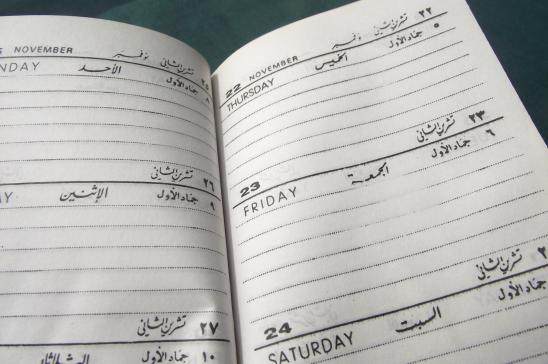 NOVEMBER نوفمبر تشرين الثاني ٢٥
NDAY الأحد جماد الأول ٨
تشرين الثاني ٢٦
AY الإثنين جماد الأول ٩
تشرين الثاني ٢٧
١٠
22 NOVEMBER نوفمبر تشرين الثاني ٢٢
THURSDAY الخميس جماد الأول ٥
23 تشرين الثاني ٢٣
FRIDAY الجمعة جماد الأول ٦
24 تشرين الثاني ٢
SATURDAY السبت جماد الأول